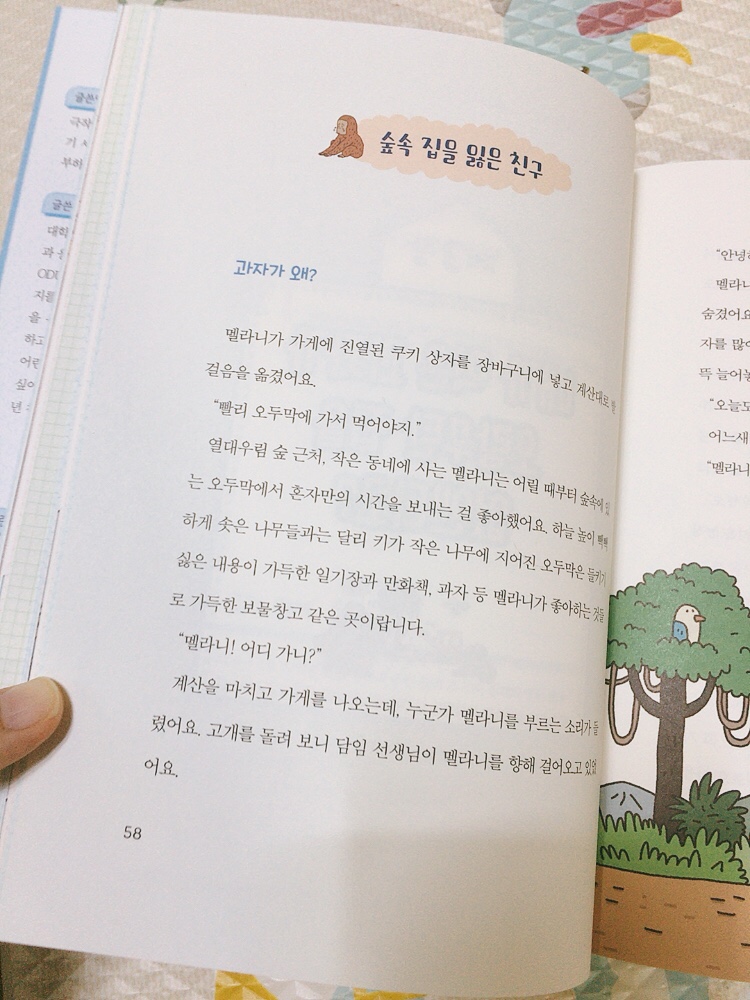 글쓴
극작
기
부하
글쓴
대학
과
ODI
지를
을
하고
어린
싶어
년
숲속 집을 잃은 친구
과자가 왜?
멜라니가 가게에 진열된 쿠키 상자를 장바구니에 넣고 계산대로
걸음을 옮겼어요.
“빨리 오두막에 가서 먹어야지.”
열대우림 숲 근처, 작은 동네에 사는 멜라니는 어릴 때부터 숲속에 있
는 오두막에서 혼자만의 시간을 보내는 걸 좋아했어요. 하늘 높이 빽빽
하게 솟은 나무들과는 달리 키가 작은 나무에 지어진 오두막은 들키기
싫은 내용이 가득한 일기장과 만화책, 과자 등 멜라니가 좋아하는 것들
로 가득한 보물창고 같은 곳이랍니다.
“멜라니! 어디 가니?”
계산을 마치고 가게를 나오는데, 누군가 멜라니를 부르는 소리가 들
렸어요. 고개를 돌려 보니 담임 선생님이 멜라니를 향해 걸어오고 있었
어요.
58
“안녕하
멜라니
숨겼어요
자를 많이
뜩 늘어놓
“오늘도
어느새
“멜라니